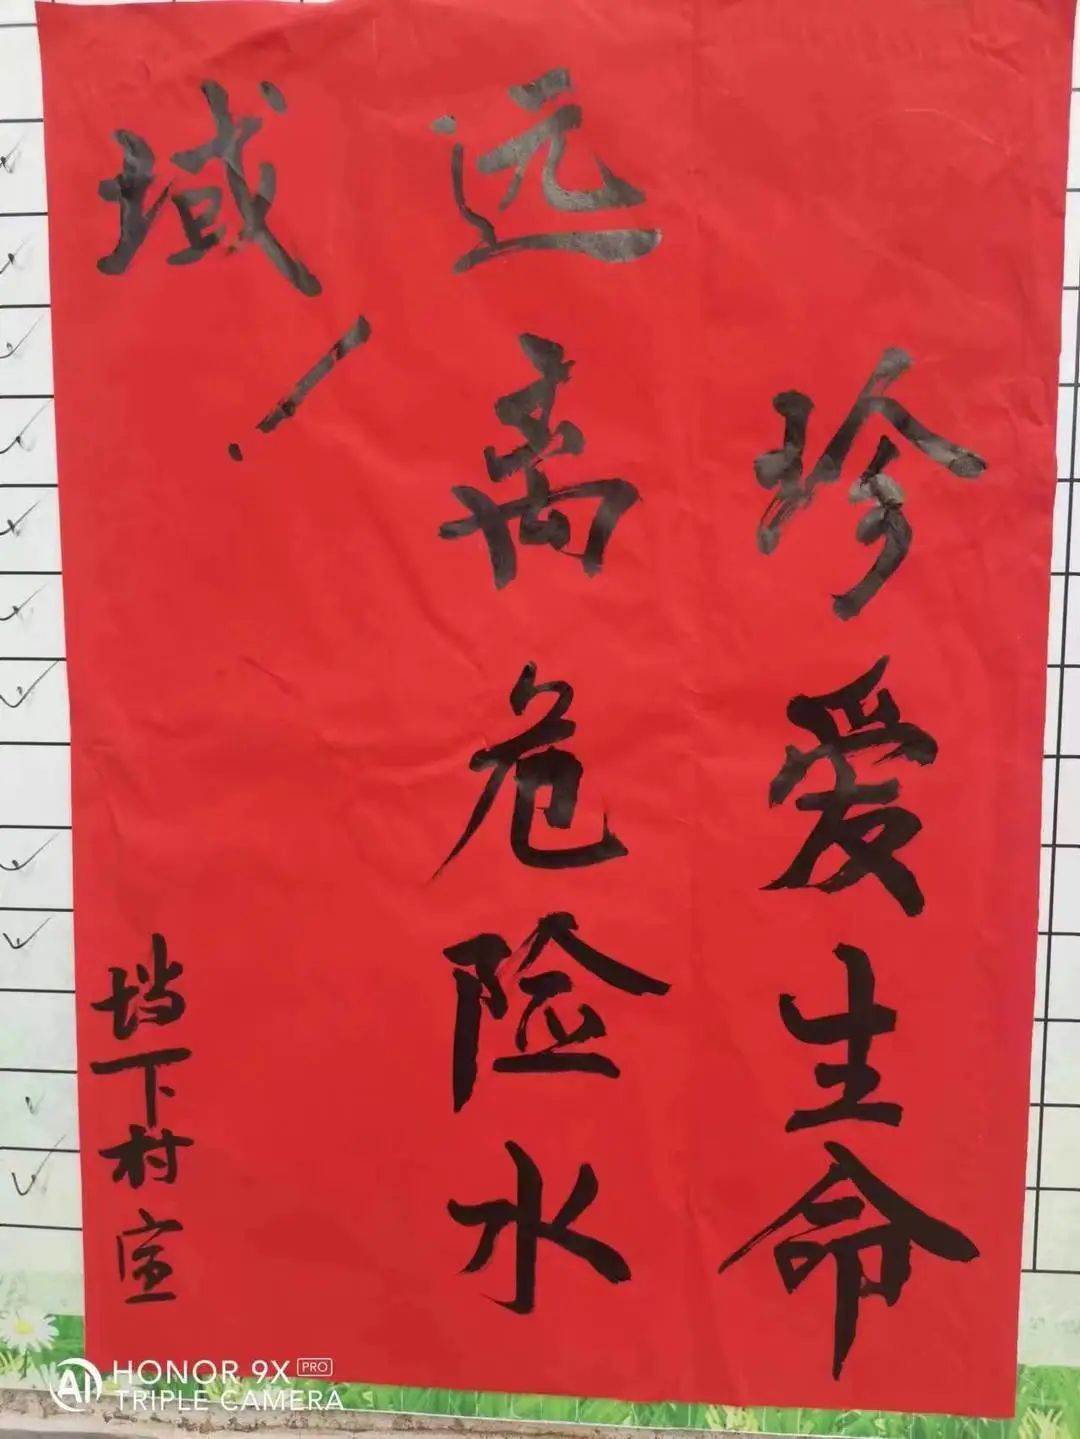 珍爱生命
远离危险水
域！
垱下村宣
AI HONOR 9X PRO
TRIPLE CAMERA